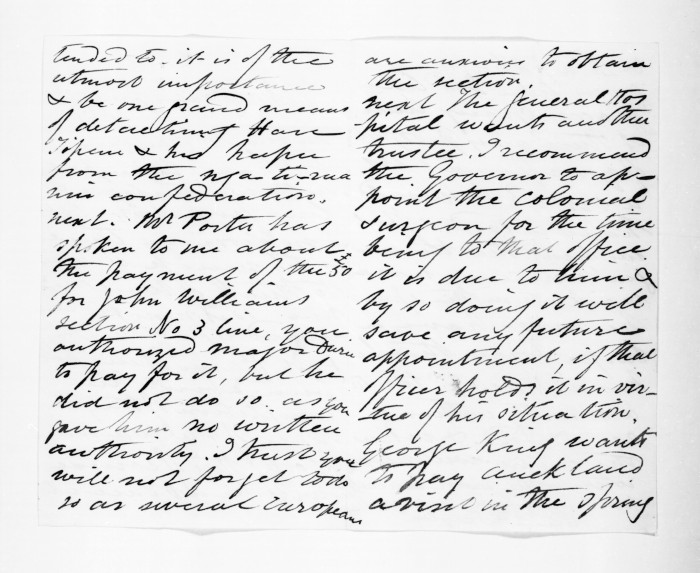 tended to. it is of the
utmost importance
& be one grand means
of detaching Hare
& his hapu
from the nga-ti-ma
nia confederation.
next. Mr Porter has
spoken to me about
the payment of the £50
for John Williams
section No 3 line, you
authorized major Durie
to pay for it, but he
did not do so. as you
gave him no written
authority. I trust you
will not forget to do
so as several Europeans
are anxious to obtain
the section.
next The General Hos
pital wants another
trustee. I recommend
the Governor to ap-
point the Colonial
Surgeon for the time
being to that office
it is due to him &
by so doing it will
save any future
appointment, if that
Officer holds it in vir-
tue of his situation.
George King wants
to pay auckland
a visit in the spring